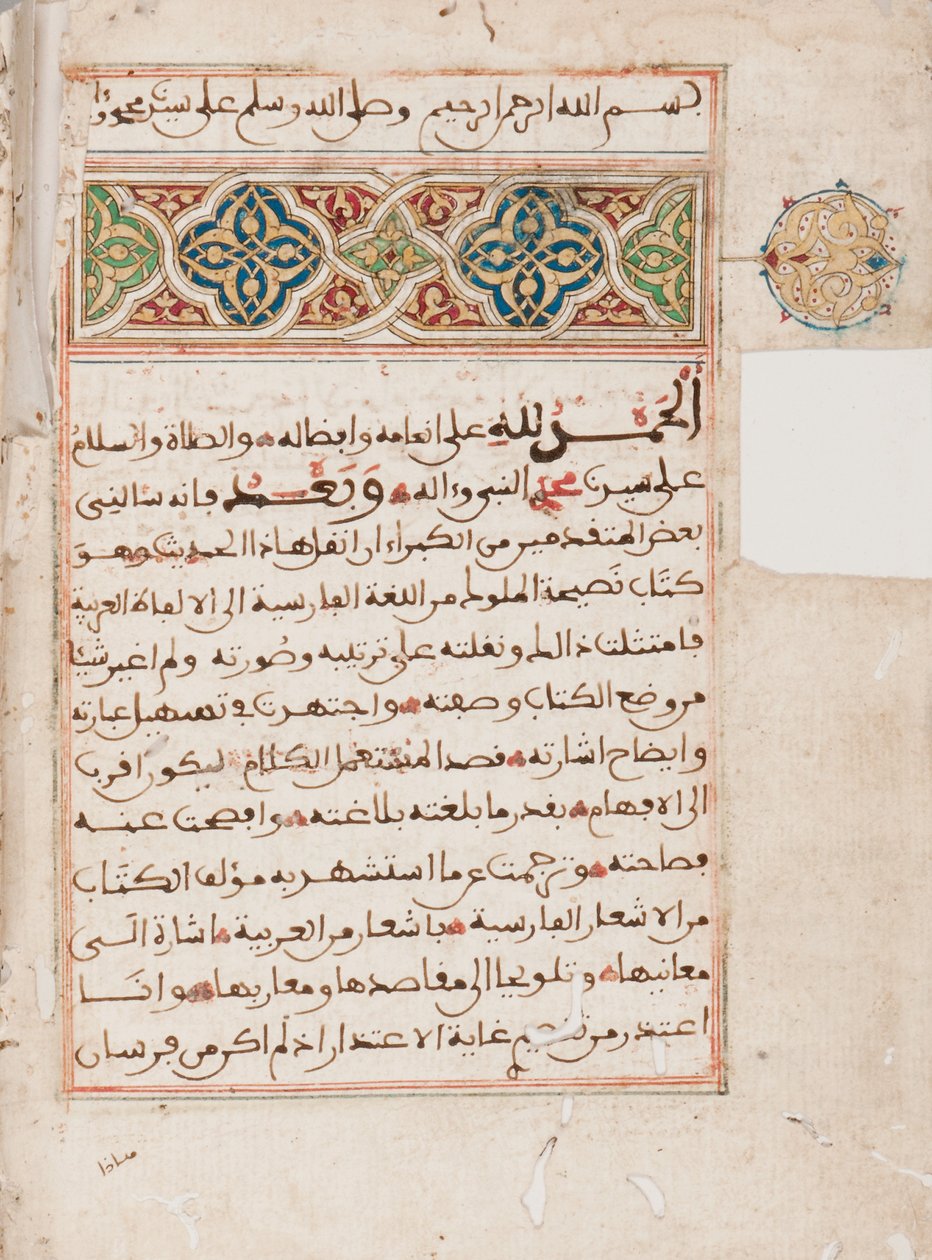 بسم الله الرحمن الرحيم وصلى الله وسلم على سيدنا محمد وءا
الحمد لله على انعامه وافضاله والصلاة والسلام
على سيدنا محمد النبي وءاله وبعد فانه سالني
بعض المتقدمين من الكبراء ان انقل هاذا الحديث وهو
كتاب نصيحة الملوك من اللغة الفارسية الى الالفاظ العربية
فامتثلت ذالك ونقلته على ترتيبه وصورته ولم اغير شيئا
من وضع الكتاب وصفته واجتهدت في تسهيل عبارته
وايضاح اشارته قصدا لمستعمل الكلام ليكون اقرب
الى الافهام بقدر ما بلغته بلاغته وافصحت عنه
فصاحته وترجمت عن ما استشهد به مؤلف الكتاب
من الاشعار الفارسية باشعار من العربية اشارة الى
معانيها وتلويحا الى مقاصدها ومعاريها وانا
اعتذر من غاية الاعتذار اذ لم اكن من فرسان